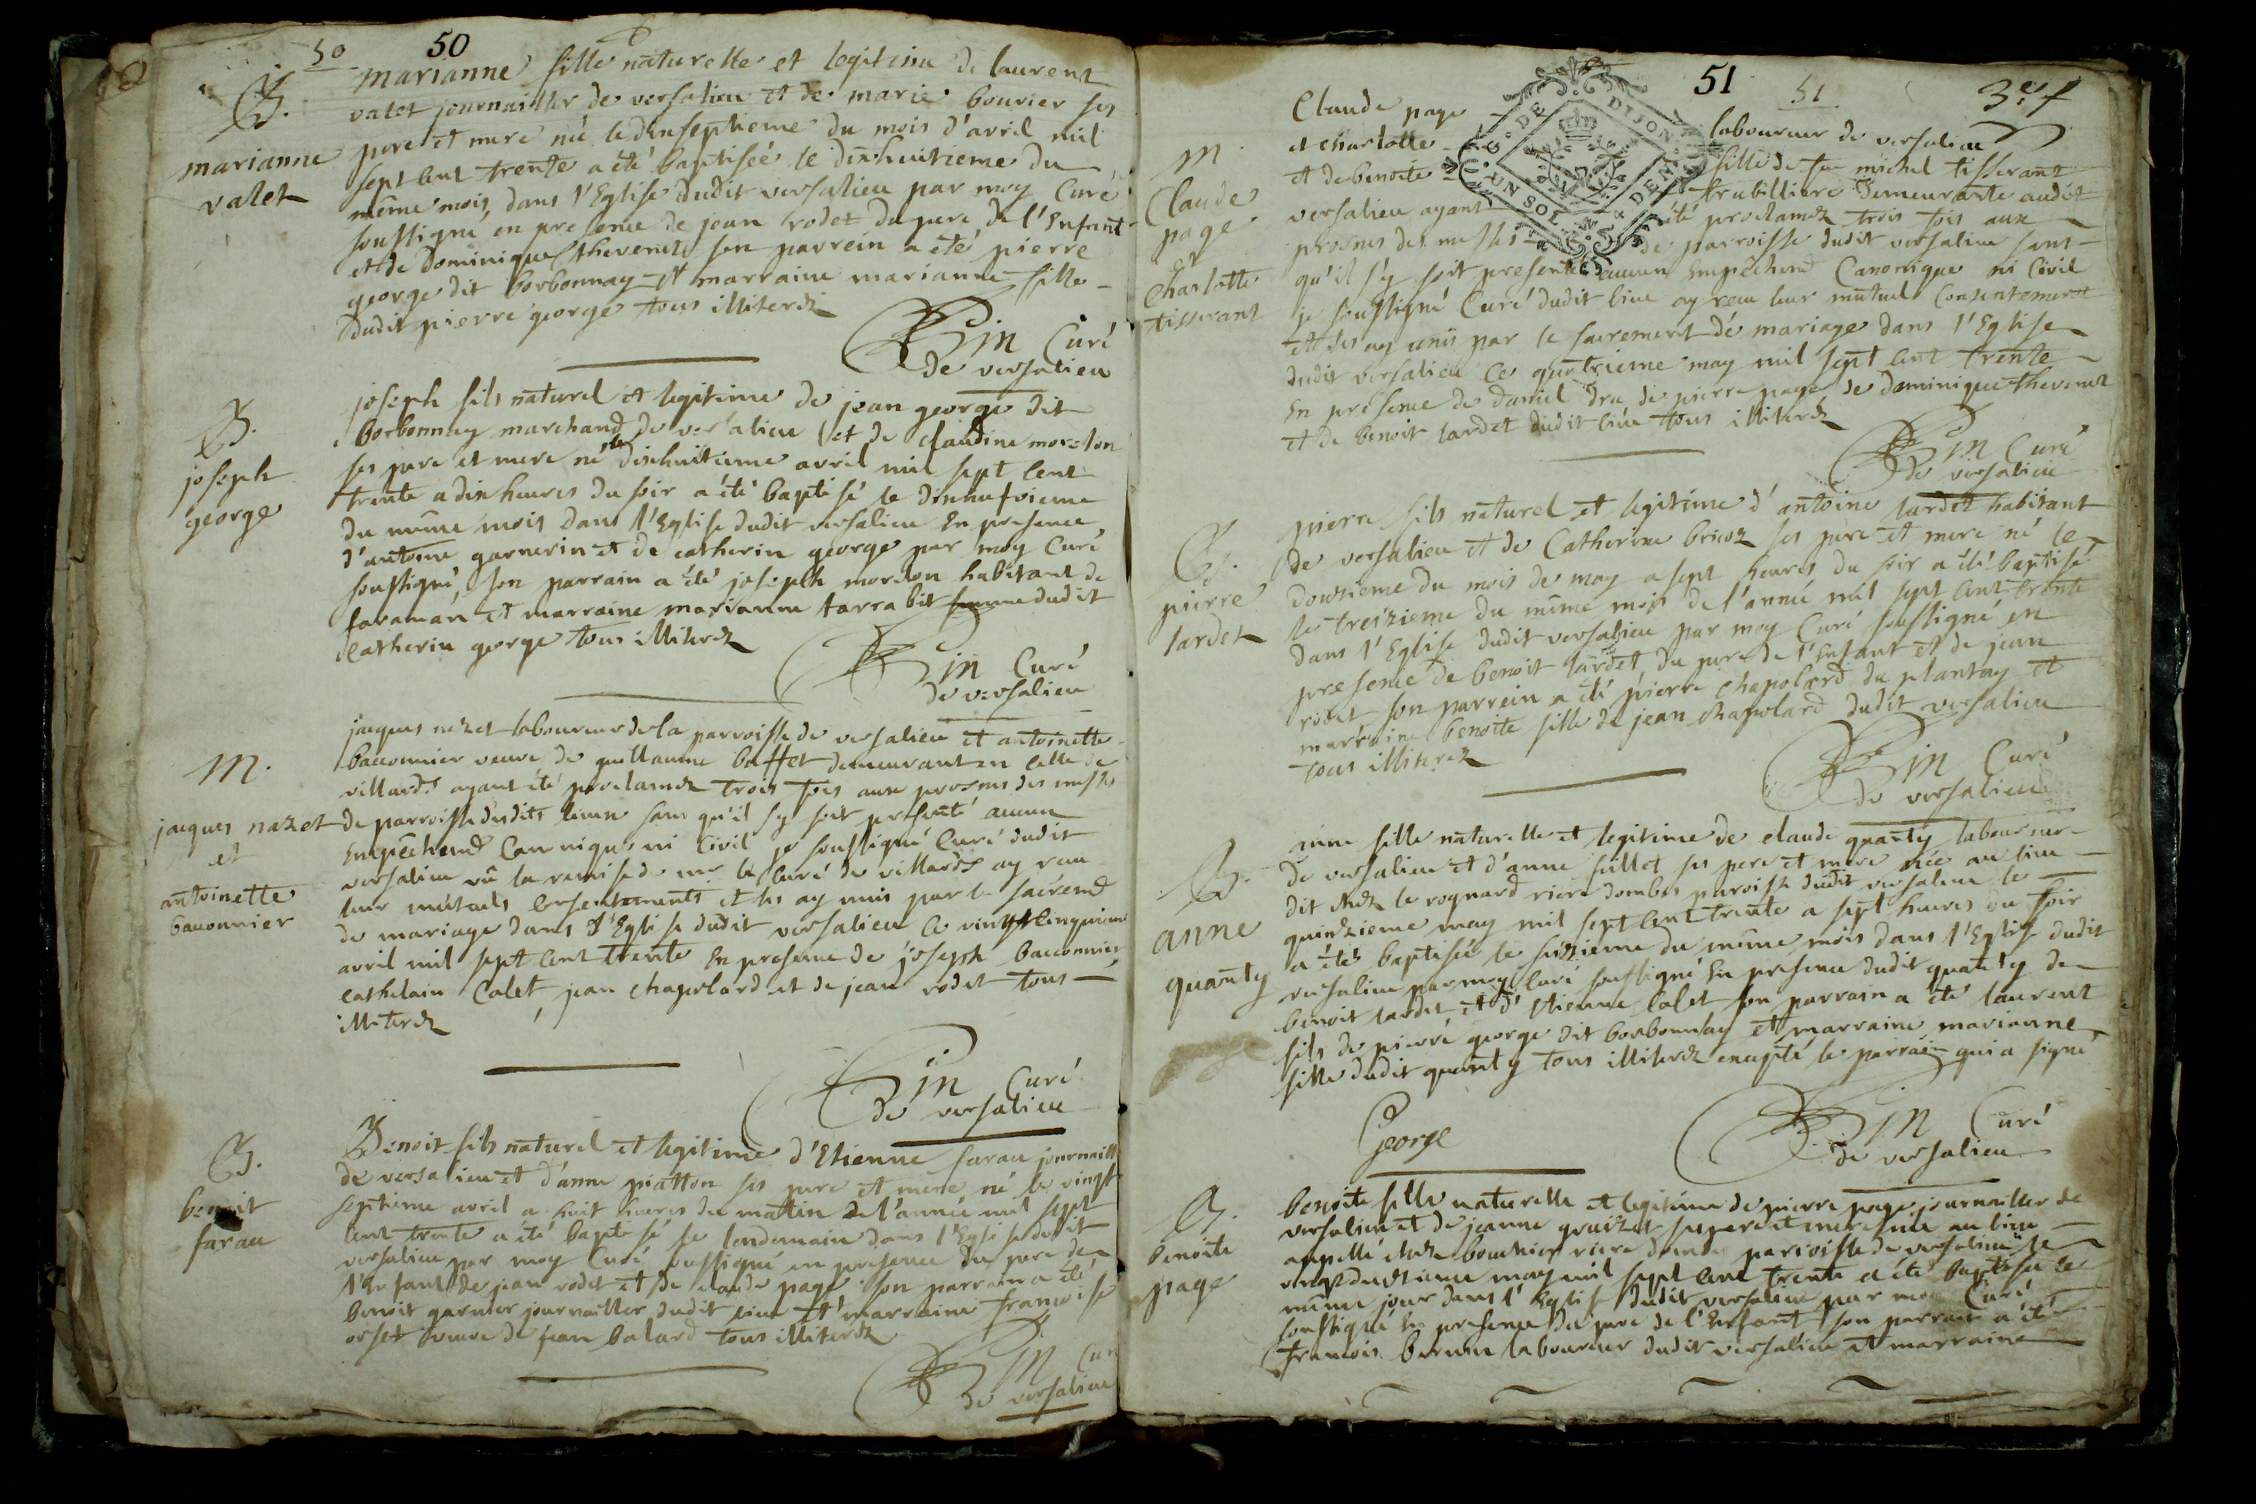 50 50
B.
marianne
valet
marianne fille naturelle et legitime de laurent
valet journallier de versalieu et de marie bouvier ses
pere et mere née le dixseptieme du mois d'avril mil
sept cent trente a été baptisée le dixhuitieme du
même mois dans l'Eglise dudit versalieu par moy Curé
soussigné en presence de jean rodet du pere de l'Enfant
et de dominique thevenet son parrein a été pierre
george dit borbonnay et marraine marianne fille
dudit pierre george tous illiterez
Curé
de versalieu
B.
joseph
george
joseph fils naturel et legitime de jean george dit
borbonnay marchand de versalieu et de claudine morelon
ses pere et mere né le dixhuitieme avril mil sept cent
trente a dix heures du soir a été baptisé le dixneufvieme
du même mois dans l'Eglise dudit versalieu En presence
d'antoine garnerin et de catherin george par moy Curé
soussigné, son parrain a été joseph morelon habitant de
faraman et marraine marianne tarrabit femme dudit
Catherin george tous illiterez
Curé
de versalieu
M.
jacques nazet
et
antoinette
bauonnier
jacques nazet laboureur de la parroisse de versalieu et antoinette
bauonnier veuve de guillaume buffet demeurant en celle de
villards ayant été proclamez trois fois aux prosnes des messes
de parroisse desdits lieux sans qu'il s'y soit presenté aucun
Empêchemd Canonique ni Civil je soussigné Curé dudit
versalieu vû la remise de mr le curé de villards ay reçu
leur mutuels consentements et les ay unis par le sacremd
de mariage dans l'Eglise dudit versalieu ce vingtcinquieme
avril mil sept cent trente En presence de joseph bauonnier
cathelain Calet jean chapolard et de jean rodet tous
illiterez
Curé
de versalieu
B.
benoit
farau
Benoit fils naturel et legitime d'Etienne farau journaill
de versalieu et d'anne piatton ses pere et mere né le vingt
septieme avril a huit heures du matin de l'année mil sept
cent trente a été baptisé le lendemain dans l'Eglise dudit
versalieu par moy Curé soussigné en presence du pere de
l'Enfant de jean rodet et de claude page son parrain a été
benoit garnier journallier dudit lieu et marraine francoise
orset veuve de jean balard tous illiterez
Cur
de versalieu
51 51
M.
Claude
page
et
Charlotte
tisserant
Claude page laboureur de versalieu
et charlotte fille de fu michel tisserant
et de benoite trubilliere Demeurante audit
versalieu ayant été proclamez trois fois aux
prosnes des messes de parroisse dudit versalieu sans
qu'il s'y soit presenté aucun Empêchemd Canonique ni Civil
je soussigné Curé dudit lieu ay reçu leur mutuel Consentement
et les ay unis par le sacrement de mariage dans l'Eglise
dudit versalieu ce quatrieme may mil sept cent trente
En presence de daniel dru de pierre page de dominique thevenet
et de benoit tardet dudit lieu tous illiterez
Curé
de versalieu
B.
pierre
tardet
pierre fils naturel et legitime d'antoine tardet habitant
de versalieu et de Catherine brioz ses pere et mere né le
douzieme du mois de may a sept heures du soir a été baptisé
le treizieme du même mois de l'année mil sept cent trente
dans l'Eglise dudit versalieu par moy Curé soussigné en
presence de benoit tardet du pere de l'Enfant et de jean
rodet son parrein a été pierre chapolard du plantay et
marraine benoite fille de jean chapolard dudit versalieu
tous illiterez
Curé
de versalieu
B.
anne
quanty
anne fille naturelle et legitime de claude quanty laboureur
de versalieu et d'anne fillet ses pere et mere née au lieu
dit chez le rognard riere dombes paroisse dudit versalieu le
quinzieme may mil sept cent trente a sept heures du soir
a été baptisée le seizieme du même mois dans l'Eglise dudit
versalieu par moy curé soussigné En presence dudit quanty de
benoit tardet et d'Etienne Calet son parrain a été laurent
fils de pierre george dit borbonnay et marraine marianne
fille dudit quanty tous illiterez excepté le parrain qui a signé
George
Curé
de versalieu
B.
benoite
page
benoite fille naturelle et legitime de pierre page journallier de
versalieu et de jeanne ses pere et mere née au lieu
appellé chez bouchier riere dombes parroisse de versalieu le
may mil sept cent trente a été baptisée le
même jour dans l'Eglise dudit versalieu par moy Curé
soussigné En presence du pere de l'Enfant son parrain a été
francois laboureur dudit versalieu et marraine